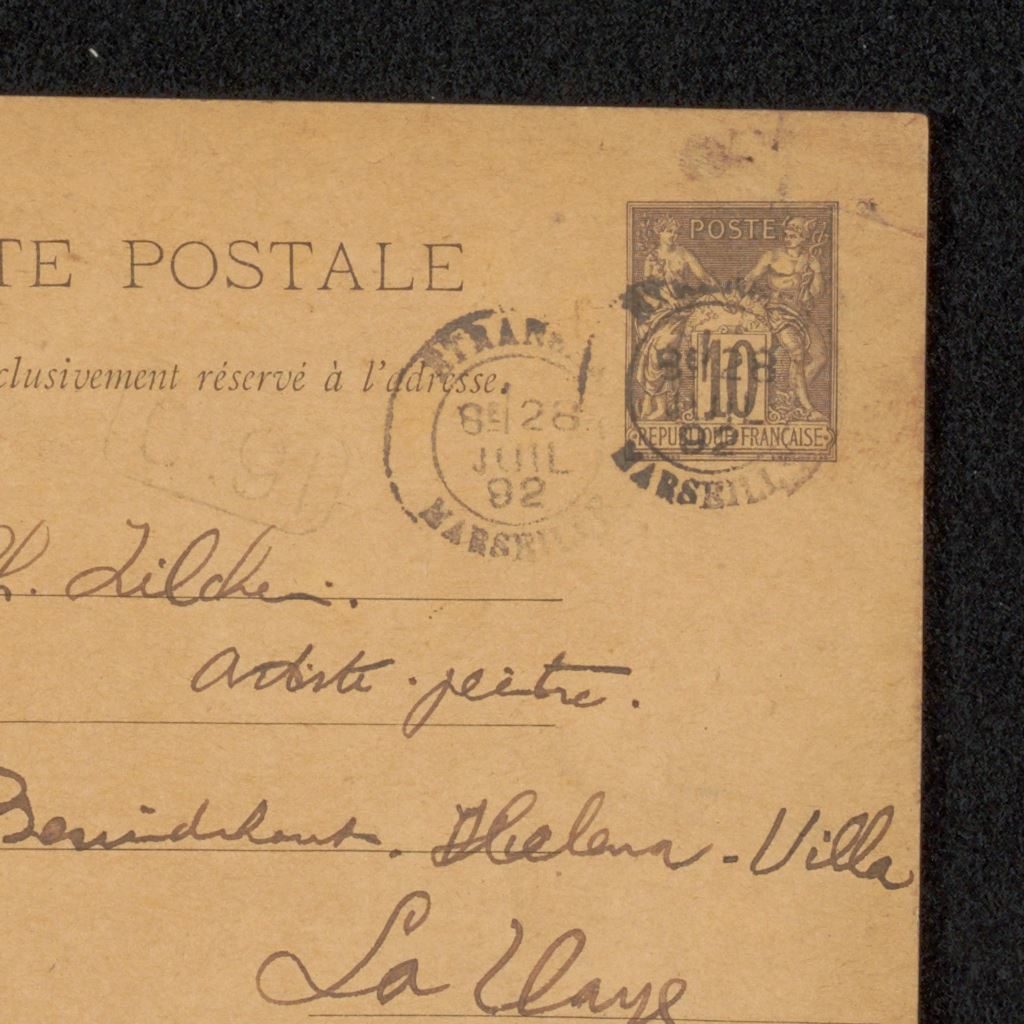 TE POSTALE
POSTE
10
REPUBLIQUE FRANÇAISE
clusivement réservé à l'adresse.
8E 28
JUIL
92
MARSEILLE
8E 28
92
MARSEILLE
h. Zilcken.
artiste-peintre.
Helena-Villa
La Haye